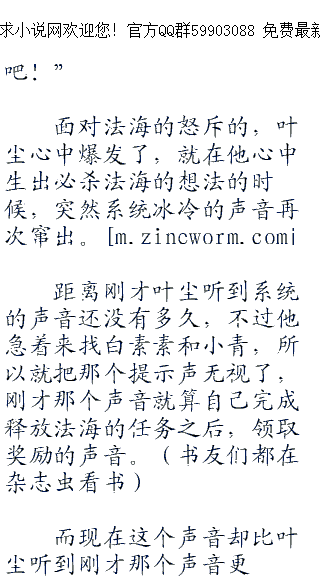 求小说网欢迎您！官方QQ群59903088 免费最新
吧！”
面对法海的怒斥的，叶
尘心中爆发了，就在他心中
生出必杀法海的想法的时
候，突然系统冰冷的声音再
次窜出。[m.zincworm.com|
距离刚才叶尘听到系统
的声音还没有多久，不过他
急着来找白素素和小青，所
以就把那个提示声无视了，
刚才那个声音就算自己完成
释放法海的任务之后，领取
奖励的声音。（书友们都在
杂志虫看书）
而现在这个声音却比叶
尘听到刚才那个声音更